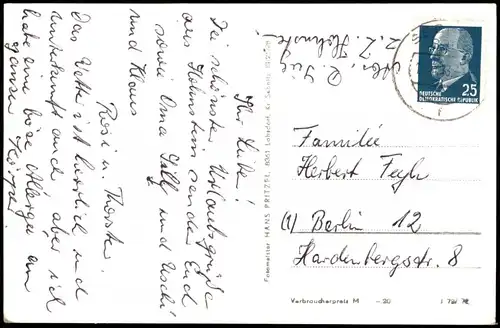 Ihr Lieben!
Die schönsten Urlaubsgrüße
aus Hohnstein senden Euch
sowie Oma Silly und Uschi
und Klaus
Rosi u. Thorsten.
Das Wetter ist herrlich und
Unterkunft auch, aber ich
habe eine böse Allergie am
ganzen Körper!
z. Z. Hohnstein
Fotomeister HANS PRITZEL, 8351 Lohsdorf, Kr. Sebnitz
DEUTSCHE
DEMOKRATISCHE REPUBLIK
25
Familie
Herbert
(1) Berlin 12
Hardenbergstr. 8
Verbraucherpreis M -20